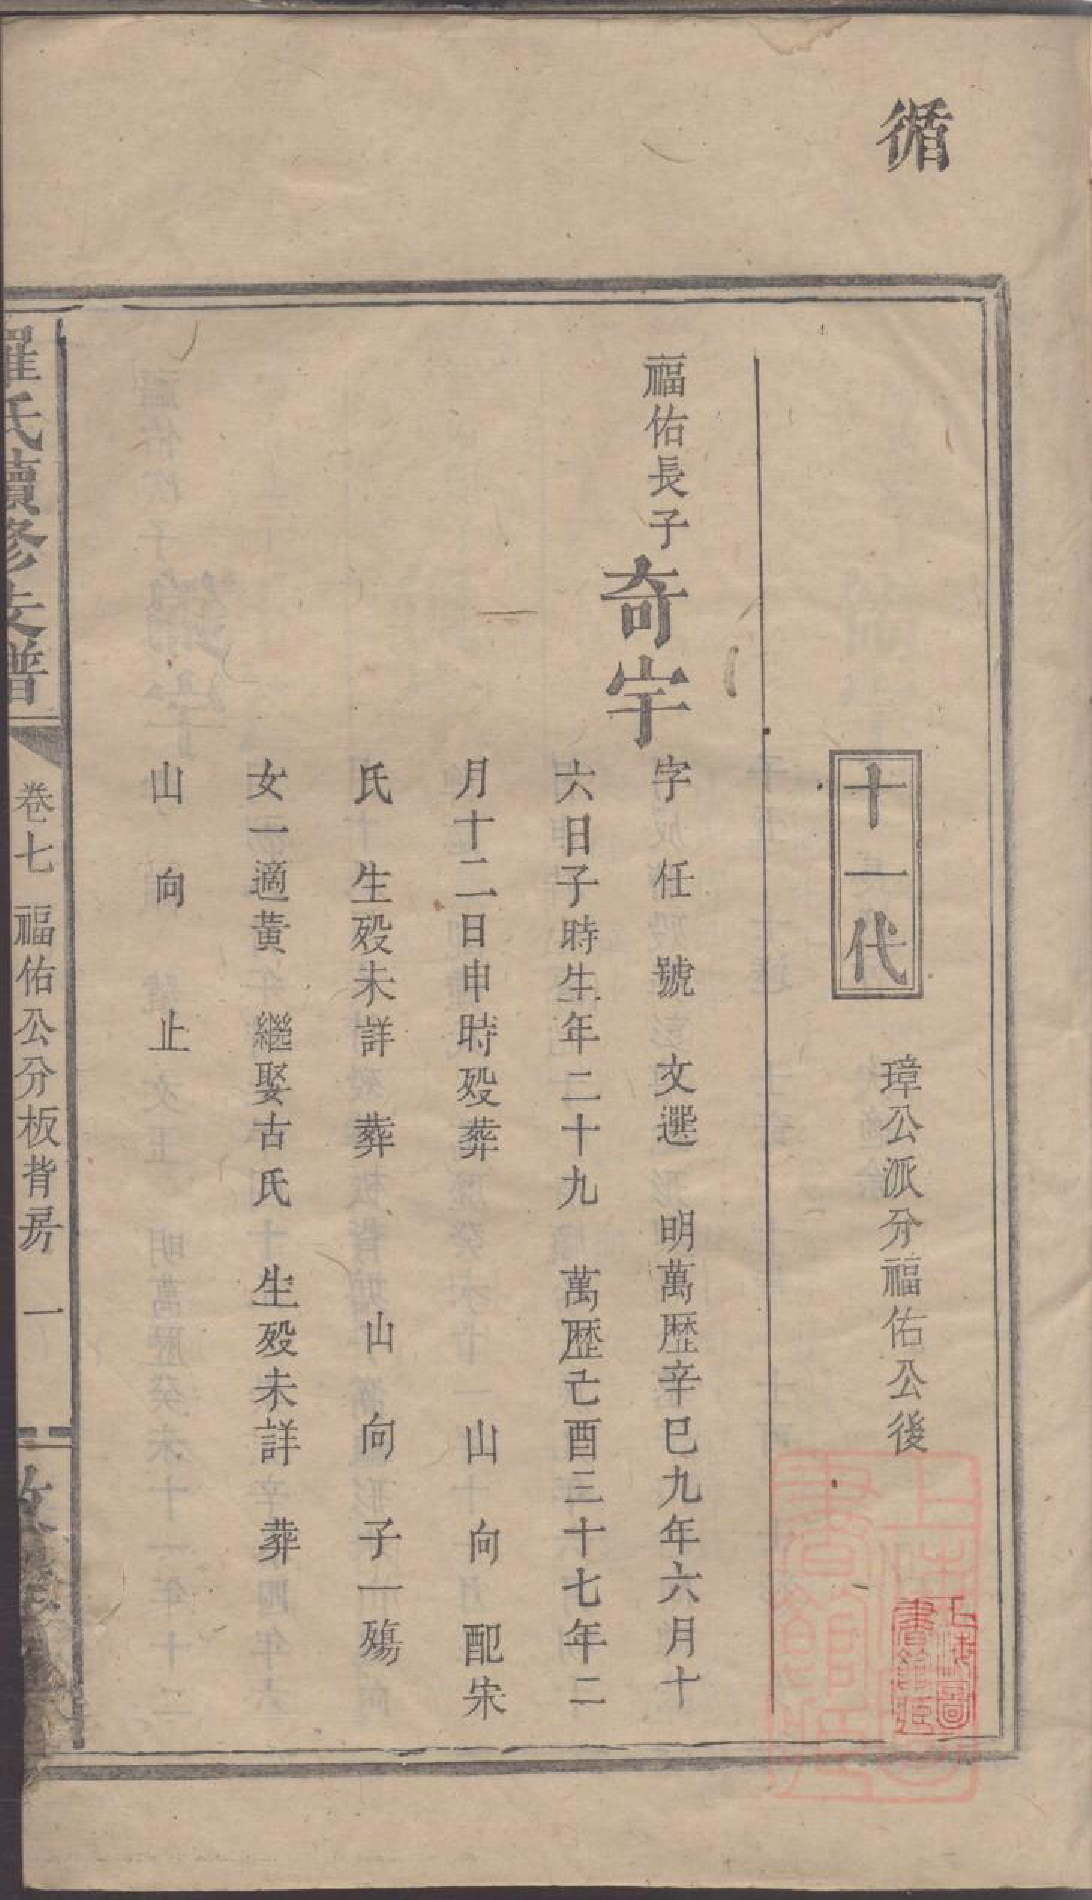 循
十一代 璋公派分福佑公後
福佑長子 奇宇 字 任 號 文選 明萬歷辛巳九年六月十
六日子時生年二十九 萬歷己酉三十七年二
月十二日申時歿葬 山 向 配宋
氏 生歿未詳 葬 山 向 子一殤
女一適黃 繼娶古氏 生歿未詳 葬
山 向 止
羅氏續修支譜 卷七 福佑公分板背房 一
上海圖書館藏